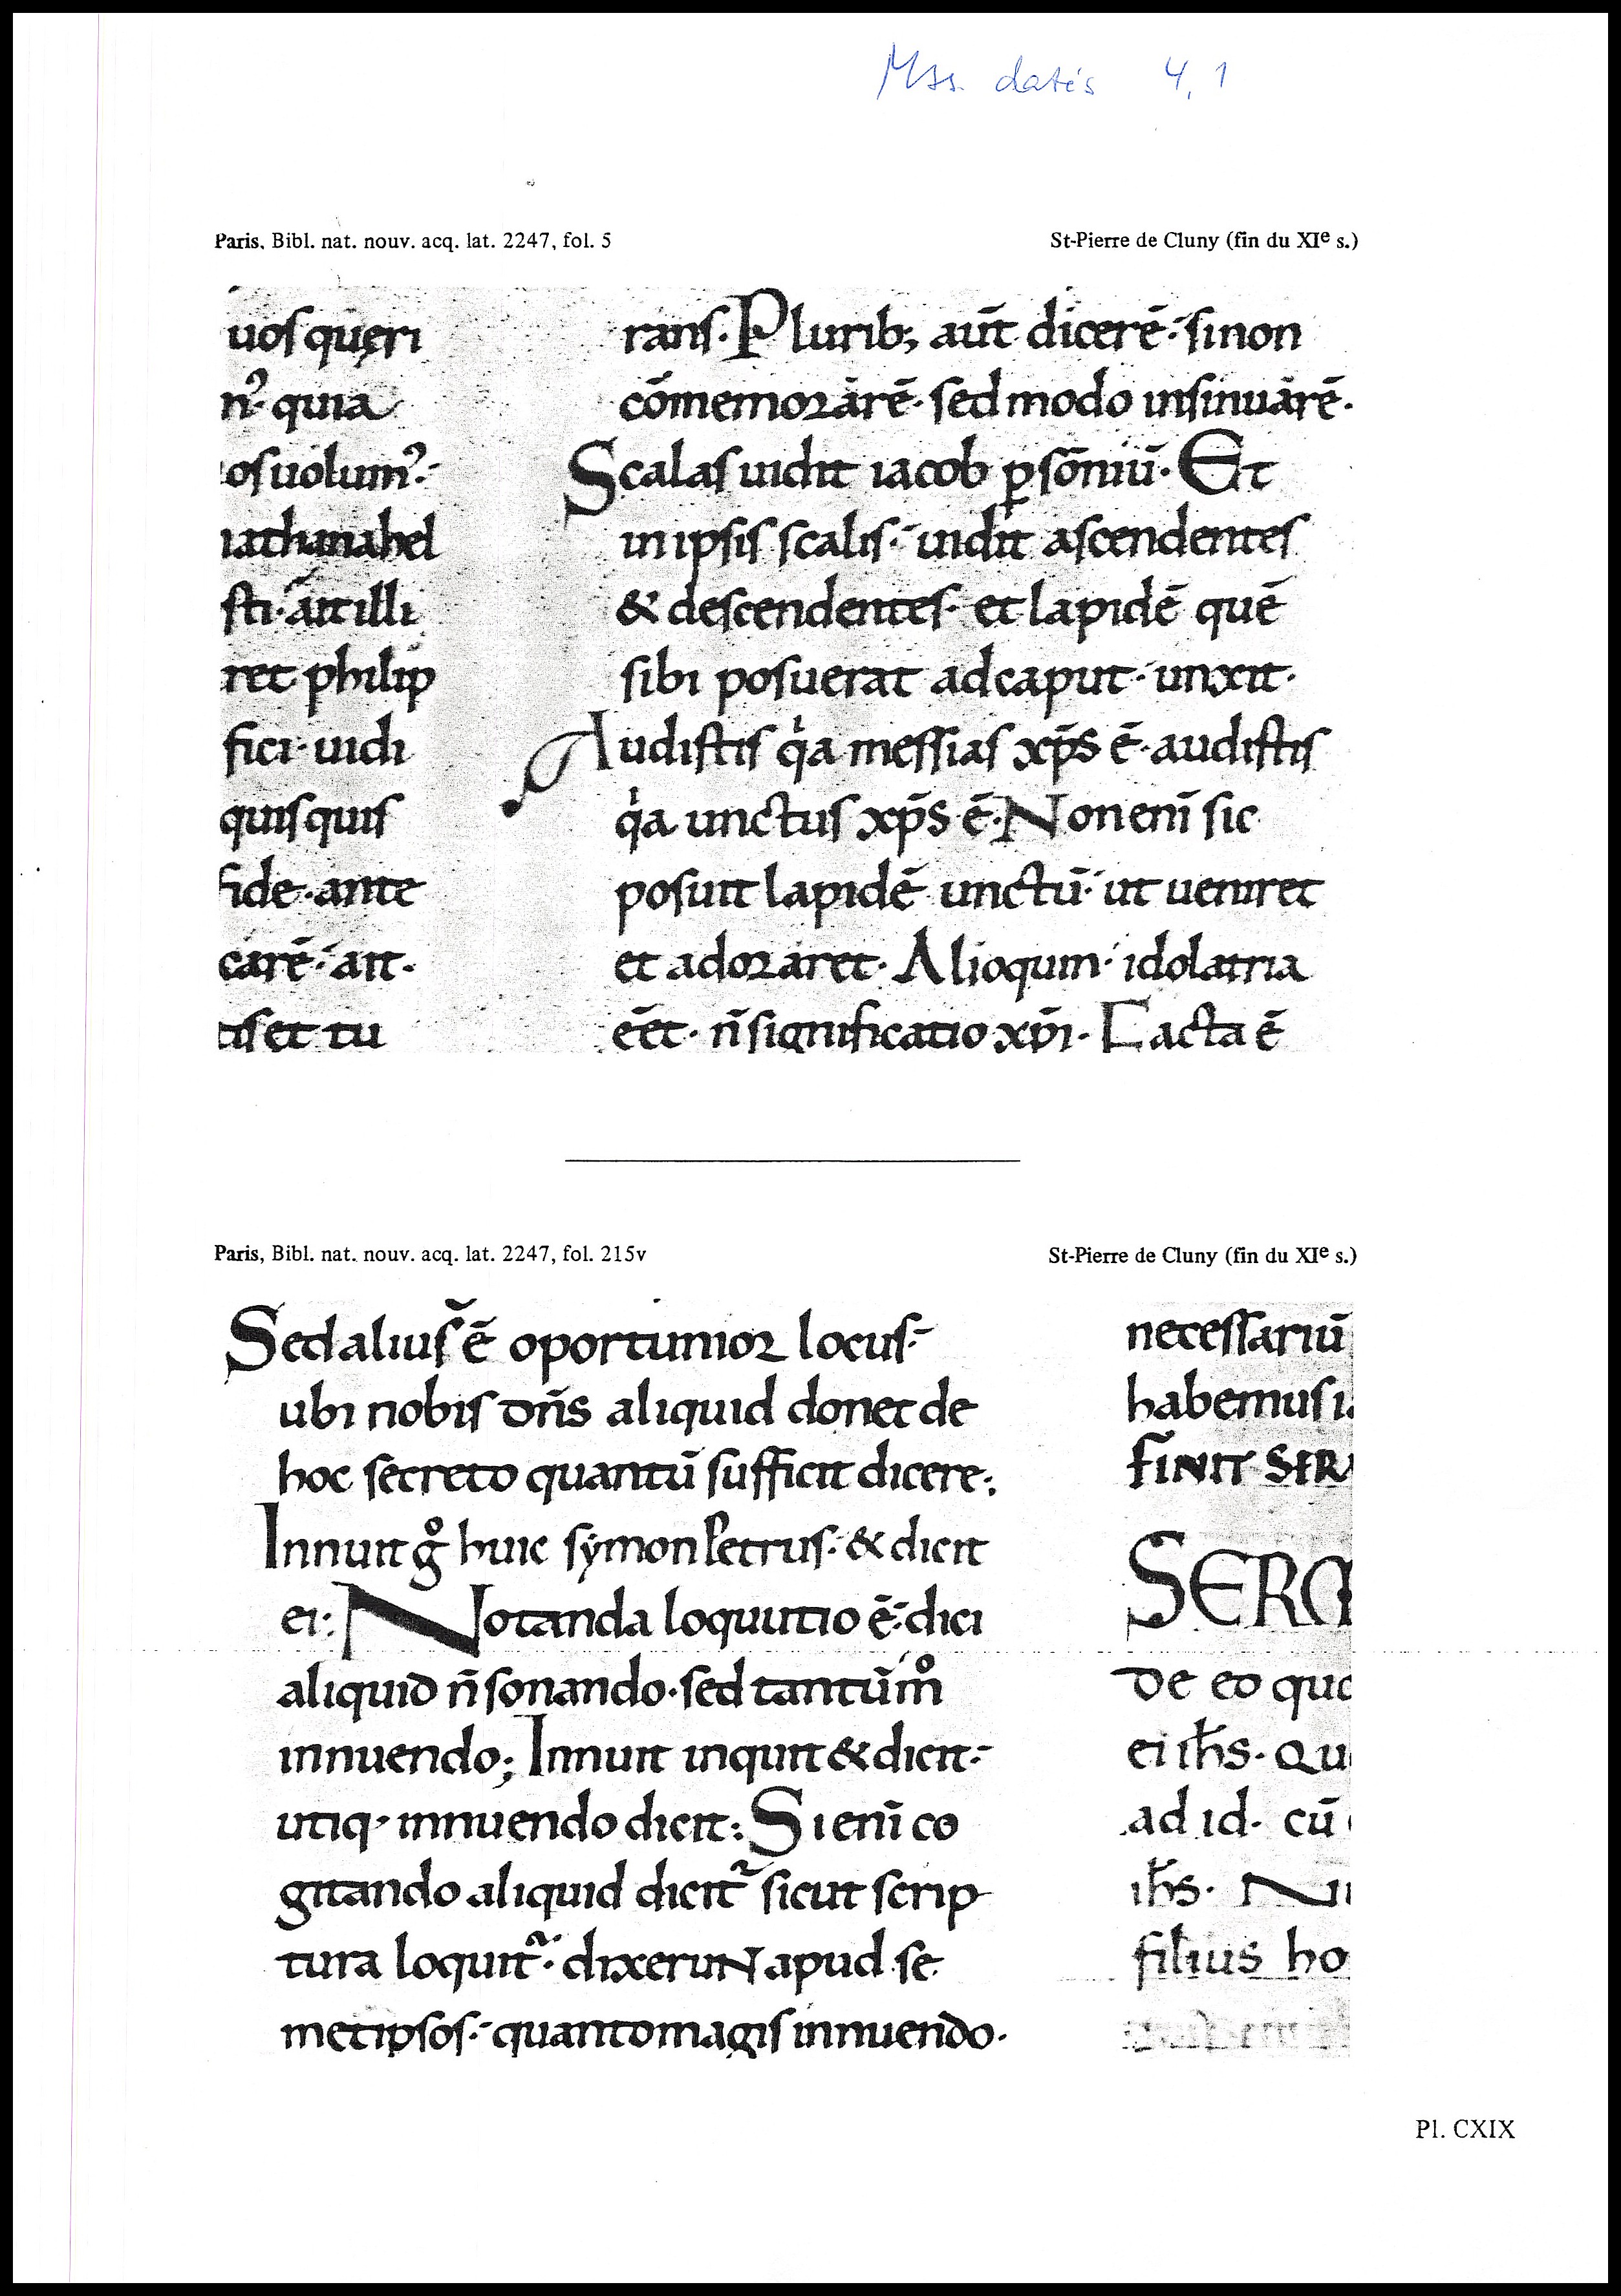 Mss. datés 4,1
Paris, Bibl. nat. nouv. acq. lat. 2247, fol. 5
St-Pierre de Cluny (fin du XIe s.)
uos quęri
n̉· quia
os uolum̉:
nathanahel
sti· ait illi
ret philip
fici· uidi
quisquis
fide· ante
carē· ait·
tis et tu
rans· Plurib; aut̄ dicerē· sinon
cōmemorarē· sed modo insinuarē·
Scalas uidit iacob p̱ sōniū· Et
in ipsis scalis· uidit ascendentes
& descendentes· et lapidē quē
sibi posuerat ad caput· unxit·
Audistis qͥa messias xp̄s ē· audistis
qͥa unctus xp̄s ē· Non enī sic
posuit lapidē unctū· ut ueniret
et adoraret· Alioquin· idolatria
eēt· n̄ significatio xp̄i· Facta ē
Paris, Bibl. nat. nouv. acq. lat. 2247, fol. 215v
St-Pierre de Cluny (fin du XIe s.)
Sed alius ē oportunior locus·
ubi nobis dn̄s aliquid donet de
hoc secreto quantū sufficit dicere;
Innuit gͦ huic symon Petrus· & dicit
ei: Notanda loquutio ē· dici
aliquid n̄ sonando· sed tantūmͦ
innuendo; Innuit inquit & dicit·
utiq· innuendo dicit: Si enī co
gitando aliquid dicit᷑ sicut scrip
tura loquit᷑· dixeruNt apud se
metipsos· quanto magis innuendo·
necessariū
habemus i
FINIT SER
SERM
De eo quo
ei ih̄s· Qu
ad id· cū
ih̄s· N
filius ho
Pl. CXIX